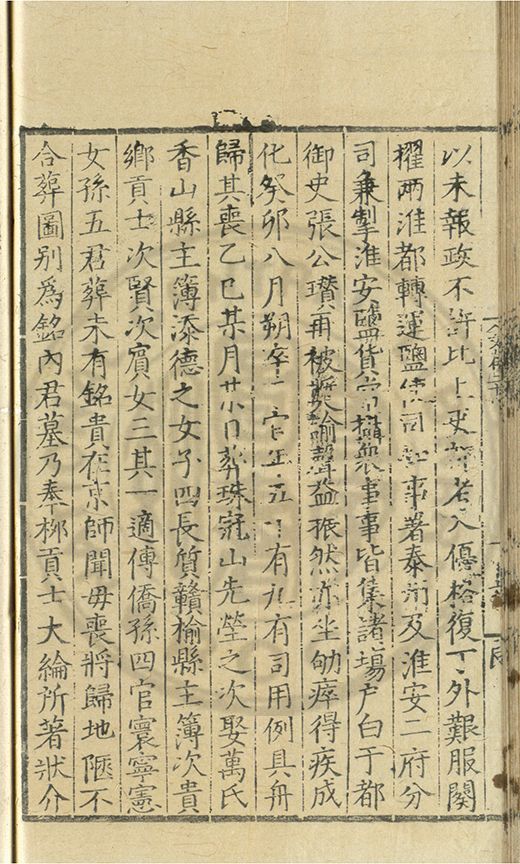 以未報政不許比上吏部若入優格復丁外艱服闋
擢兩淮都轉運鹽使司知事著泰州及淮安二府分
司兼掣淮安鹽貨常攝製事事皆集諸場户白于都
御史張公瓚再被獎諭聲益振然亦坐劬瘁得疾成
化癸卯八月朔卒于官年五十有九有司用例具舟
歸其喪乙巳某月廿日葬珠冠山先塋之次娶萬氏
香山縣主簿添德之女子四長質贛榆縣主簿次貴
鄉貢士次賢次賓女三其一適傅僑孫四官寰寧憲
女孫五君葬未有銘貴在京師聞毋喪將歸地陿不
合葬圖别為銘内君墓乃奉柳貢士大綸所著狀介